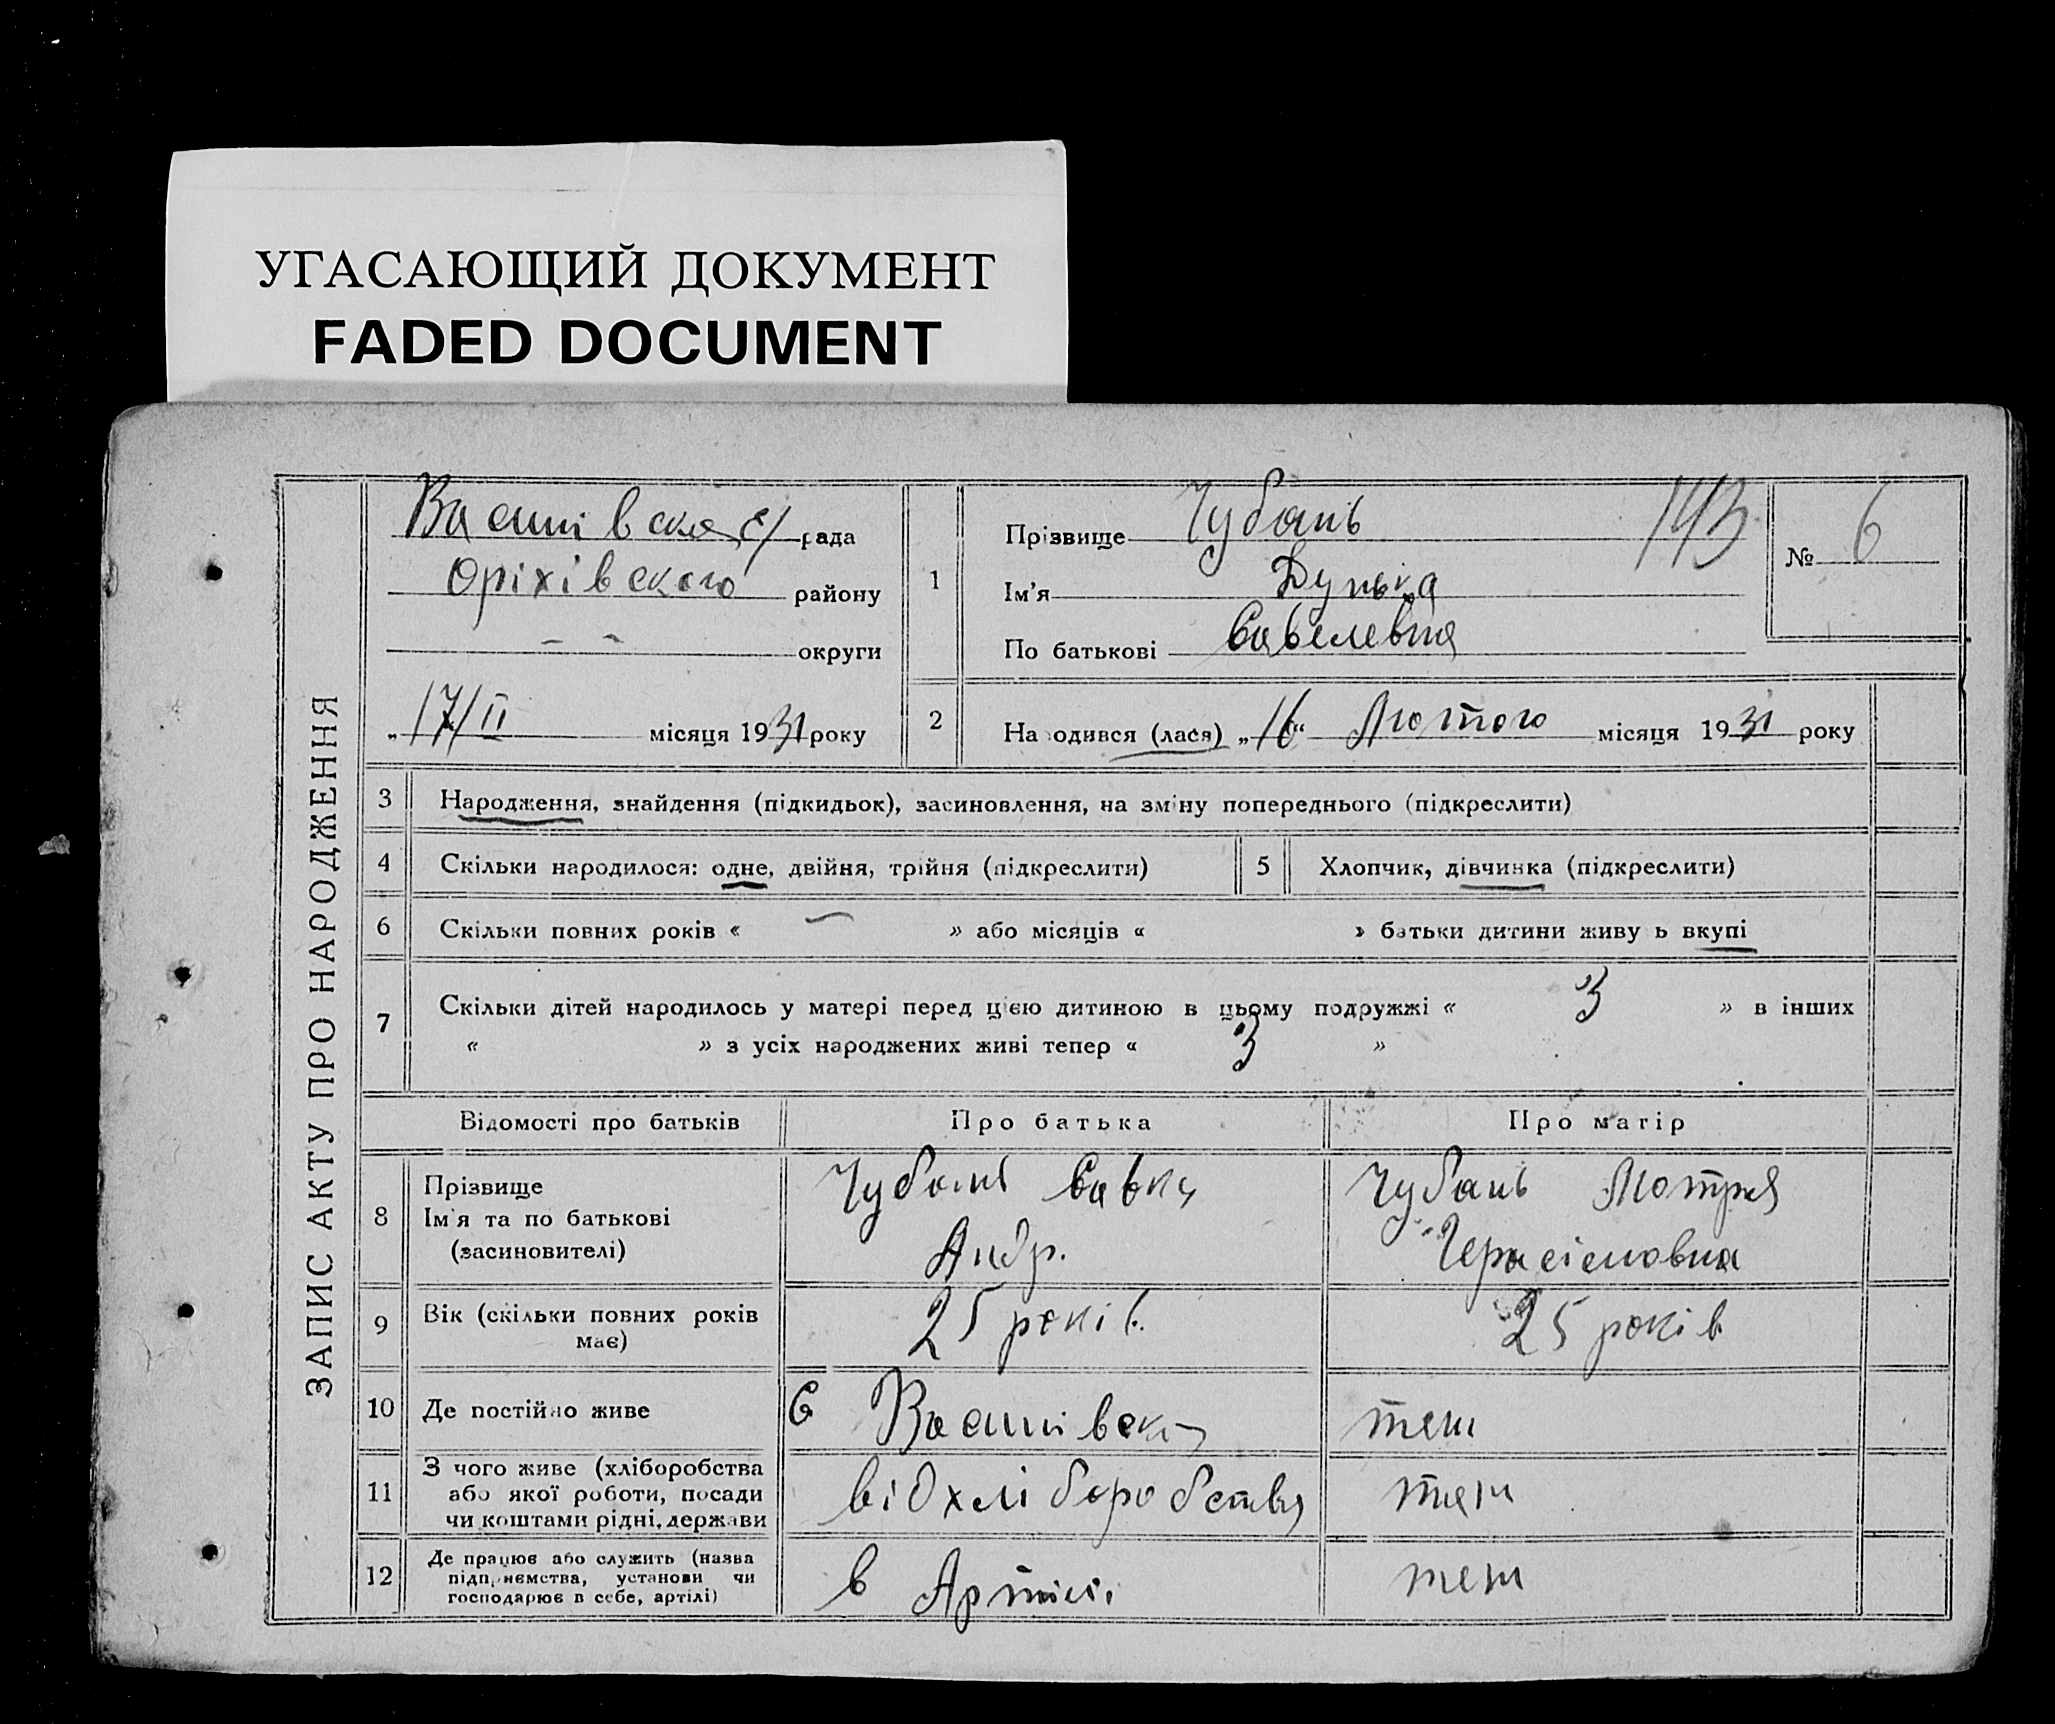 УГАСАЮЩИЙ ДОКУМЕНТ
FADED DOCUMENT
ЗАПИС АКТУ ПРО НАРОДЖЕННЯ
рада
Оріхівського району
— — округи
„17/II місяця 1931 року
1
Прізвище Чубань 143
Ім'я Дунька
По батькові Савелевна
№ 6
2 Народився (лася) „16“ Лютого місяця 1931 року
3 Народження, знайдення (підкидьок), засиновлення, на зміну попереднього (підкреслити)
4 Скільки народилося: одне, двійня, трійня (підкреслити) 5 Хлопчик, дівчинка (підкреслити)
6 Скільки повних років « — » або місяців « » батьки дитини живуть вкупі
7 Скільки дітей народилось у матері перед цією дитиною в цьому подружжі « 3 » в інших
« » з усіх народжених живі тепер « 3 »
Відомості про батьків Про батька Про матір
8 Прізвище
Ім'я та по батькові
(засиновителі)
Чубань Савка
Андр.
Чубань Мотря
Герасімовна
9 Вік (скільки повних років
має)
25 років. 25 років
10 Де постійно живе
теж
11 З чого живе (хліборобства
або якої роботи, посади
чи коштами рідні, держави
від хліборобства теж
12 Де працює або служить (назва
підприємства, установи чи
господарює в себе, артілі)
в Артілі. теж